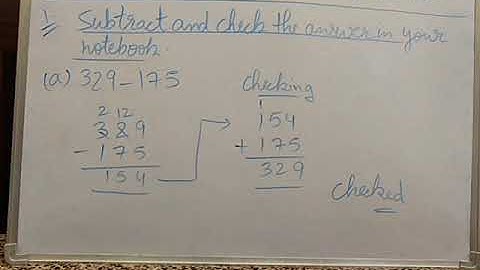 1 Subtract and check the answer in your
notebook.
(a) 329-175
2 12
329
- 175
154
checking
1
154
+ 175
329
Checked